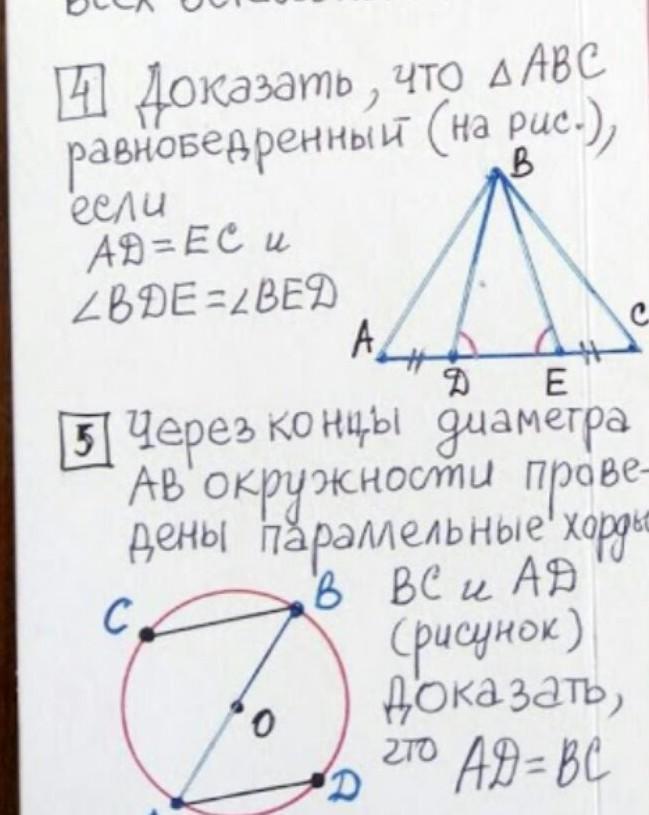 всех
4 Доказать, что △ABC
равнобедренный (на рис.),
если
AD=EC и
∠BDE=∠BED
B
A
D
E
C
5 Через концы диаметра
AB окружности прове-
дены параллельные хорды
BC и AD
(рисунок)
Доказать,
что AD=BC
C
B
O
D